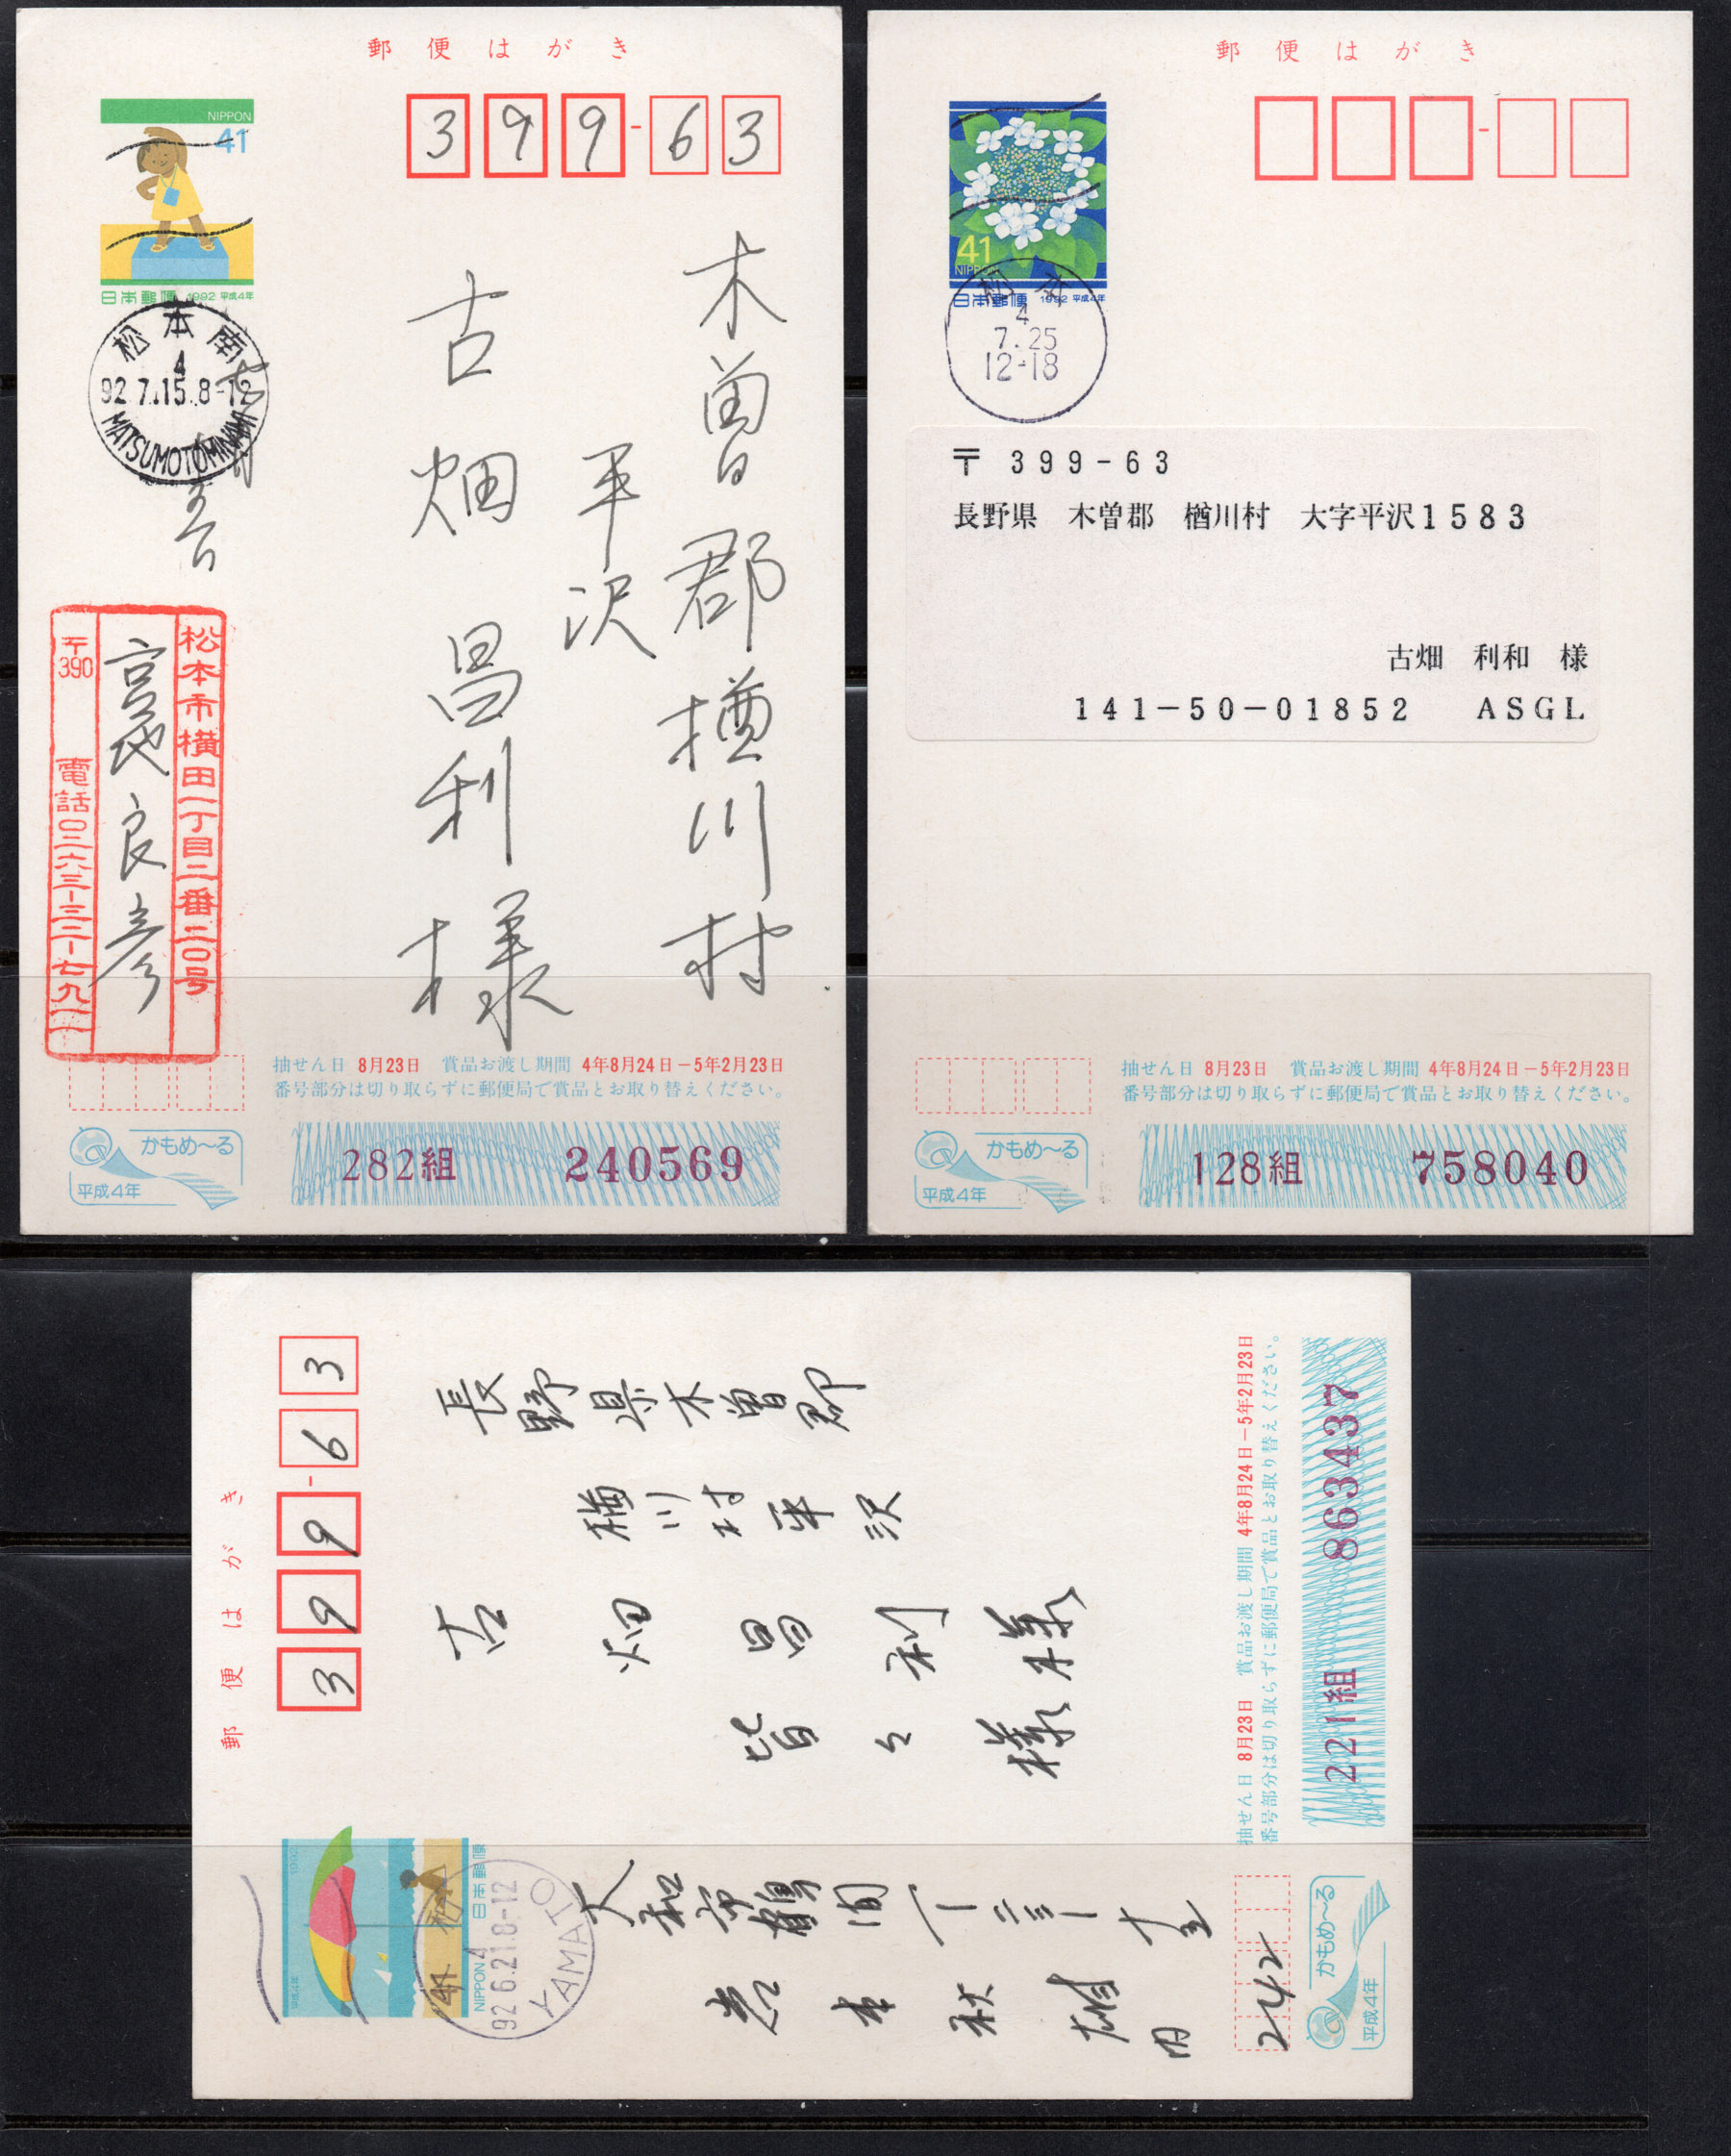 郵便はがき
NIPPON
41
日本郵便 1992 平成4年
399-63
松本南
4
92.7.15.8-12
MATSUMOTOMINAMI
木曽郡楢川村
平沢
古畑昌利様
松本市横田一丁目二番二〇号
良彦
〒390
電話〇二六三-三二-七九一一
抽せん日 8月23日 賞品お渡し期間 4年8月24日-5年2月23日
番号部分は切り取らずに郵便局で賞品とお取り替えください。
かもめ〜る
平成4年
282組 240569
郵便はがき
41
NIPPON
日本郵便 1992 平成4年
松本
4
7.25
12-18
〒 399-63
長野県 木曽郡 楢川村 大字平沢1583
古畑 利和 様
141-50-01852 ASGL
抽せん日 8月23日 賞品お渡し期間 4年8月24日-5年2月23日
番号部分は切り取らずに郵便局で賞品とお取り替えください。
かもめ〜る
平成4年
128組 758040
郵便はがき
399-63
長野県木曽郡
楢川村平沢
古畑昌利様
皆々様
1992
平成4年
41
NIPPON
日本郵便
大和
4
92 6.21.8-12
YAMATO
大和市鶴間一-二三-十五
本秋雄
内
242
抽せん日 8月23日 賞品お渡し期間 4年8月24日-5年2月23日
番号部分は切り取らずに郵便局で賞品とお取り替えください。
かもめ〜る
平成4年
221組 863437